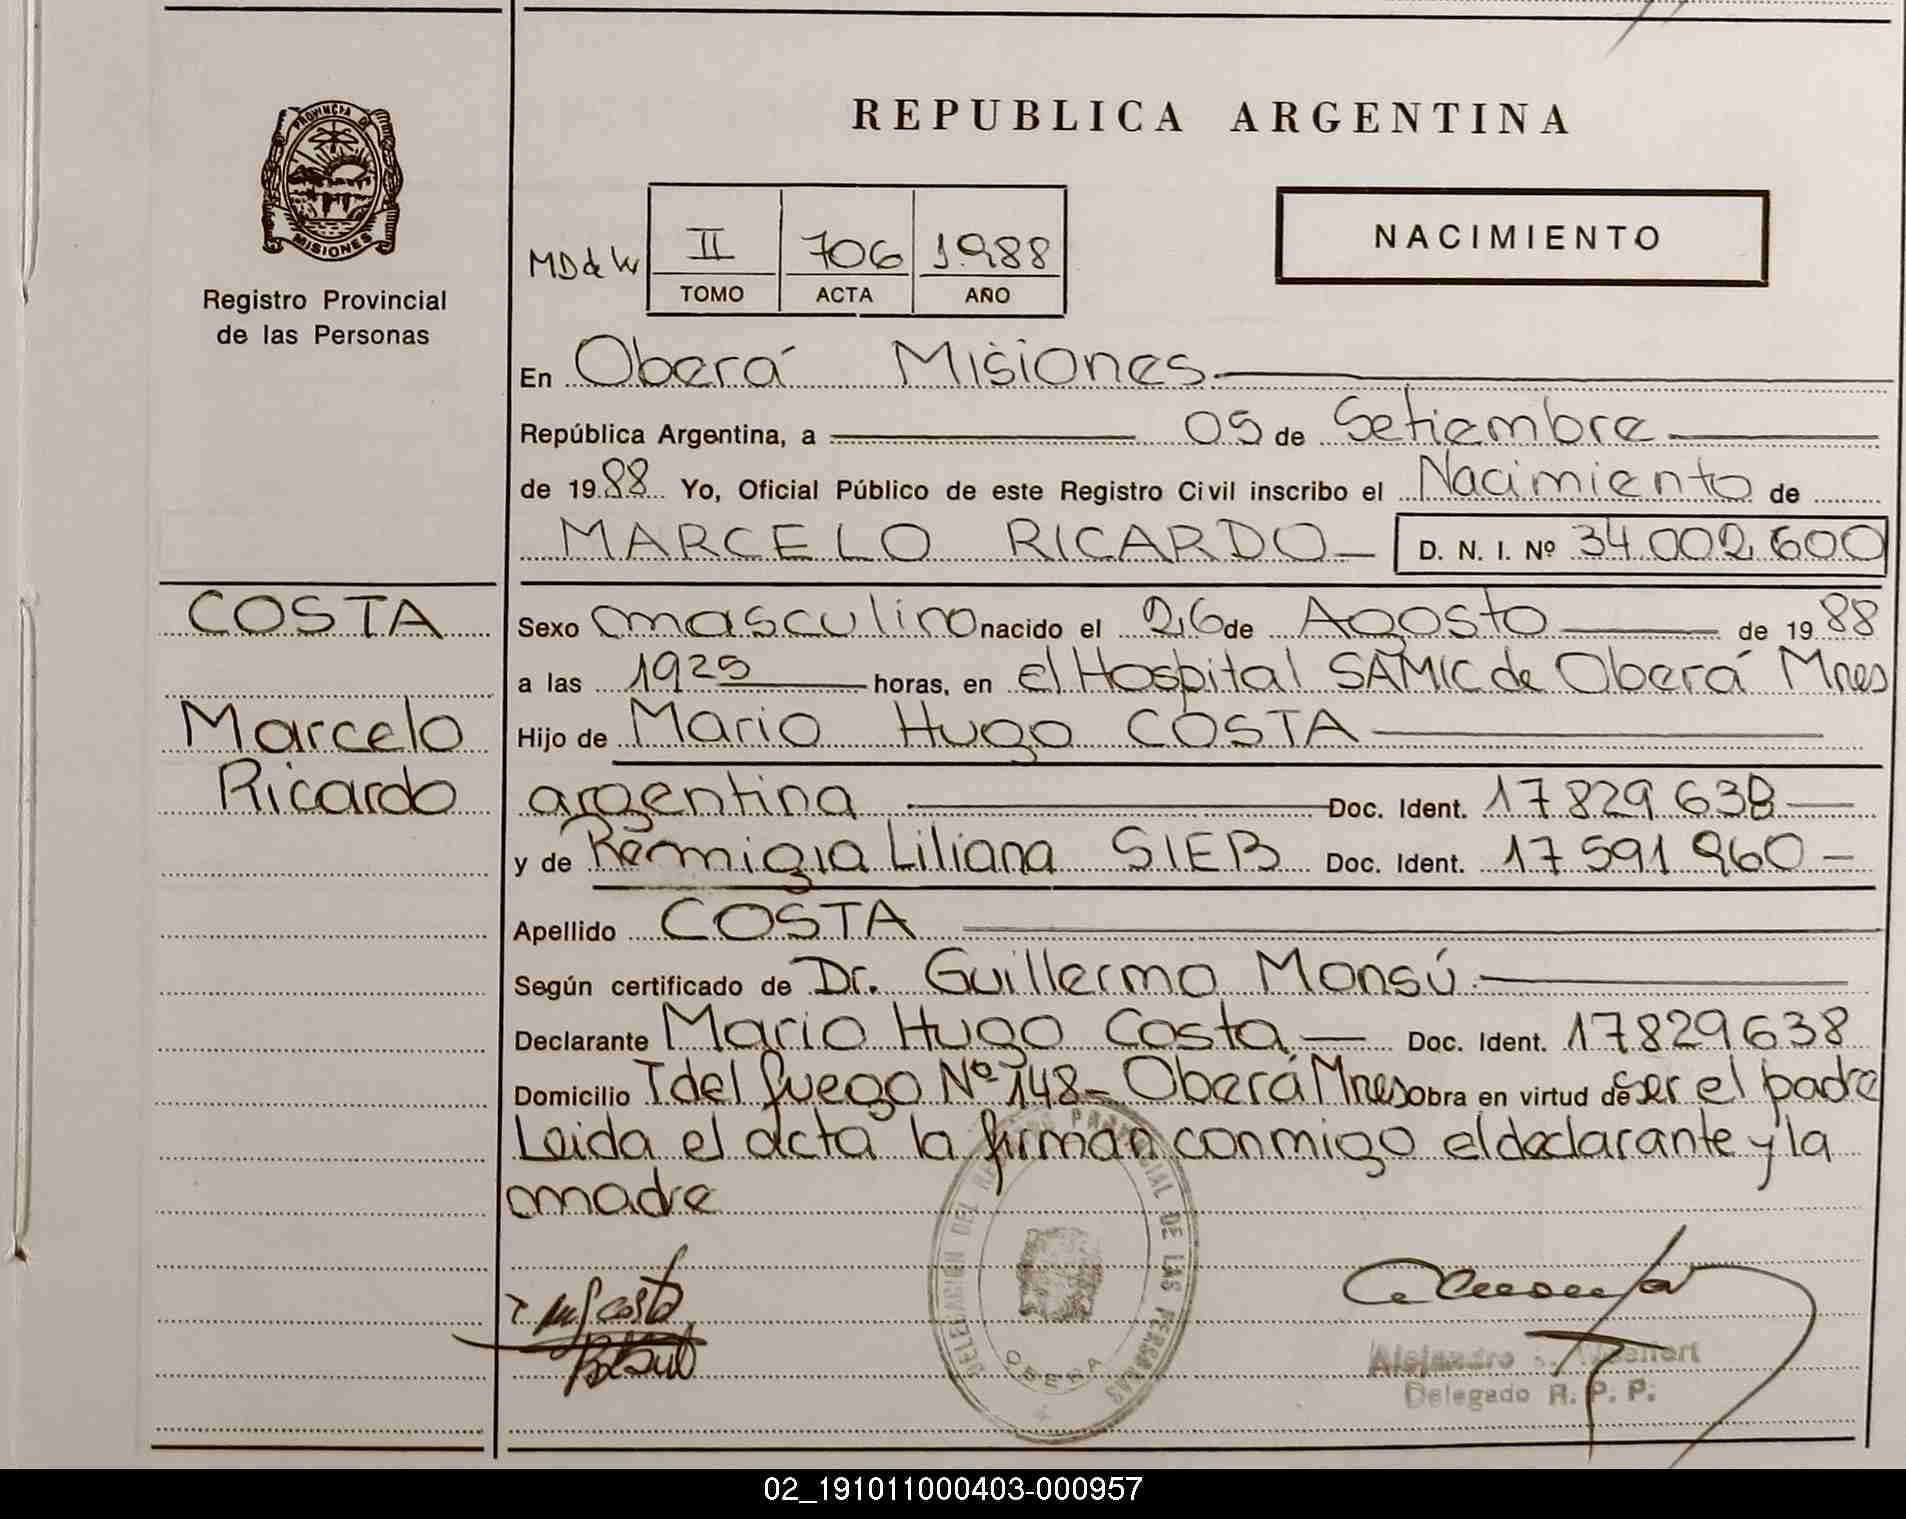 PROVINCIA DE
MISIONES
Registro Provincial
de las Personas
REPUBLICA ARGENTINA
NACIMIENTO
MD de W
II 706 1988
TOMO ACTA AÑO
En Oberá Misiones
República Argentina, a 05 de Setiembre
de 1988 Yo, Oficial Público de este Registro Civil inscribo el Nacimiento de
MARCELO RICARDO D. N. I. Nº 34.002.600
COSTA
Marcelo
Ricardo
Sexo masculino nacido el 26 de Agosto de 1988
a las 1925 horas, en el Hospital SAMIC de Oberá Mnes
Hijo de Mario Hugo COSTA
argentina Doc. Ident. 17829638
y de Remigia Liliana SIEB Doc. Ident. 17591960
Apellido COSTA
Según certificado de Dr. Guillermo Monsú
Declarante Mario Hugo Costa Doc. Ident. 17829638
Domicilio T del fuego Nº 148- Oberá Mnes Obra en virtud de ser el padre
Leida el acta la firman conmigo el declarante y la
madre
costa
DELEGACION DEL REGISTRO PROVINCIAL DE LAS PERSONAS
OBERA
Alejandro
Delegado R. P. P.
02_191011000403-000957